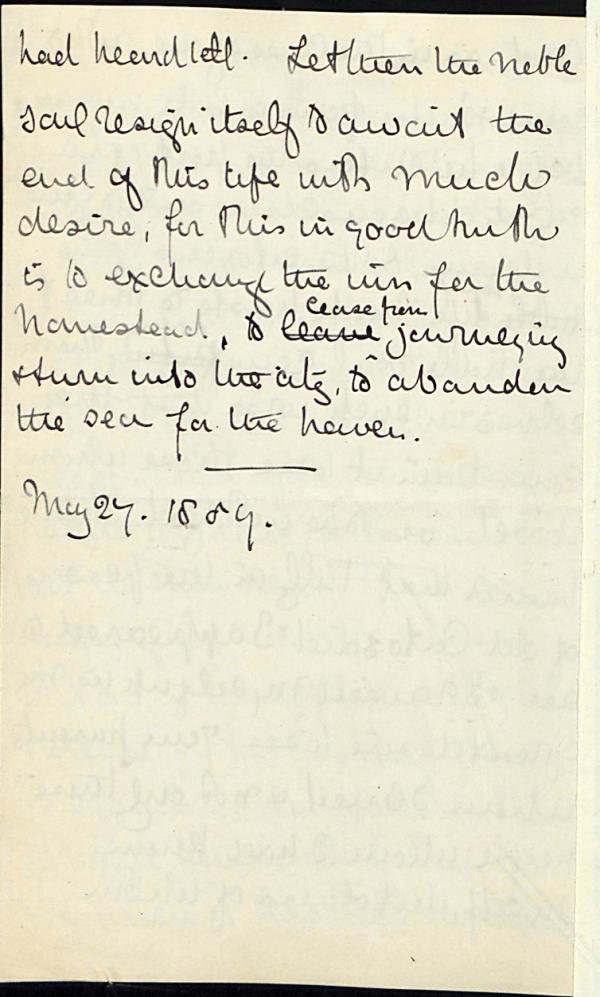 had heard tell. Let then the noble
soul resign itself to await the
end of this life with much
desire, for this in good truth
is to exchange the inn for the
homestead, to leave cease from journeying
& turn into the city, to abandon
the sea for the haven.
May 27. 1889.